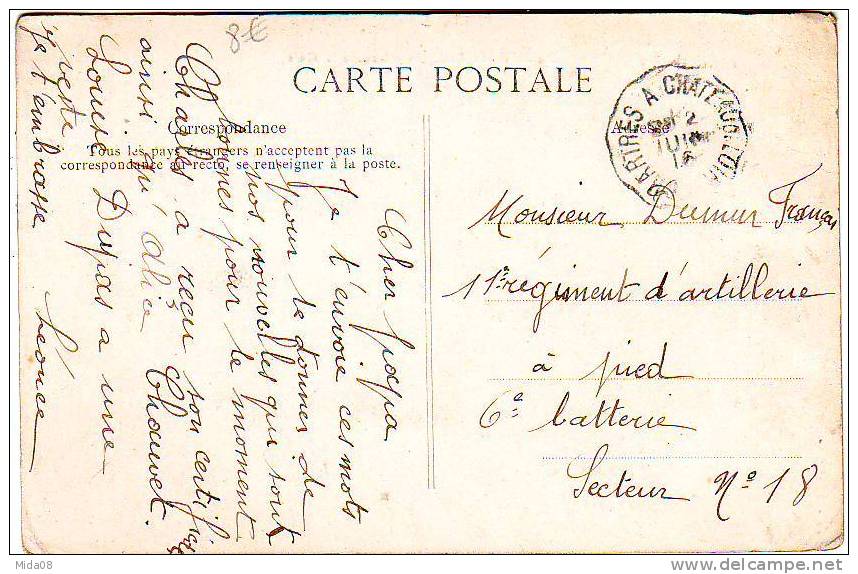 8€
CARTE POSTALE
Correspondance
Tous les pays étrangers n'acceptent pas la
correspondance au recto, se renseigner à la poste.
Adresse
CHARTRES A CHATEAU D. LOIR
2
JUIN
Cher papa
Je t'envoie ces mots
pour te donner de
nos nouvelles qui sont
bonnes pour le moment
Charles a reçu son certificat
ainsi qu'Alice Chauvet.
Louise Dupas a une
veste
Je t'embrasse Léonce
Monsieur Dumur François
11e régiment d'artillerie
à pied
6e batterie
Secteur No 18
Mida08
delcampe.net